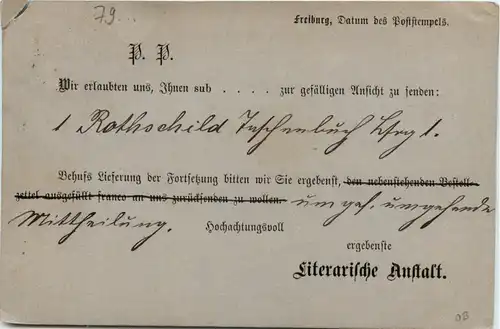 79...
Freiburg, Datum des Poststempels.
P. P.
Wir erlaubten uns, Ihnen sub . . . . zur gefälligen Ansicht zu senden:
1 Rothschild Taschenbuch Lfrg 1.
Behufs Lieferung der Fortsetzung bitten wir Sie ergebenst, den nebenstehenden Bestell-
zettel ausgefüllt franco an uns zurücksenden zu wollen. um gef. umgehende
Mittheilung. Hochachtungsvoll
ergebenste
Literarische Anstalt.